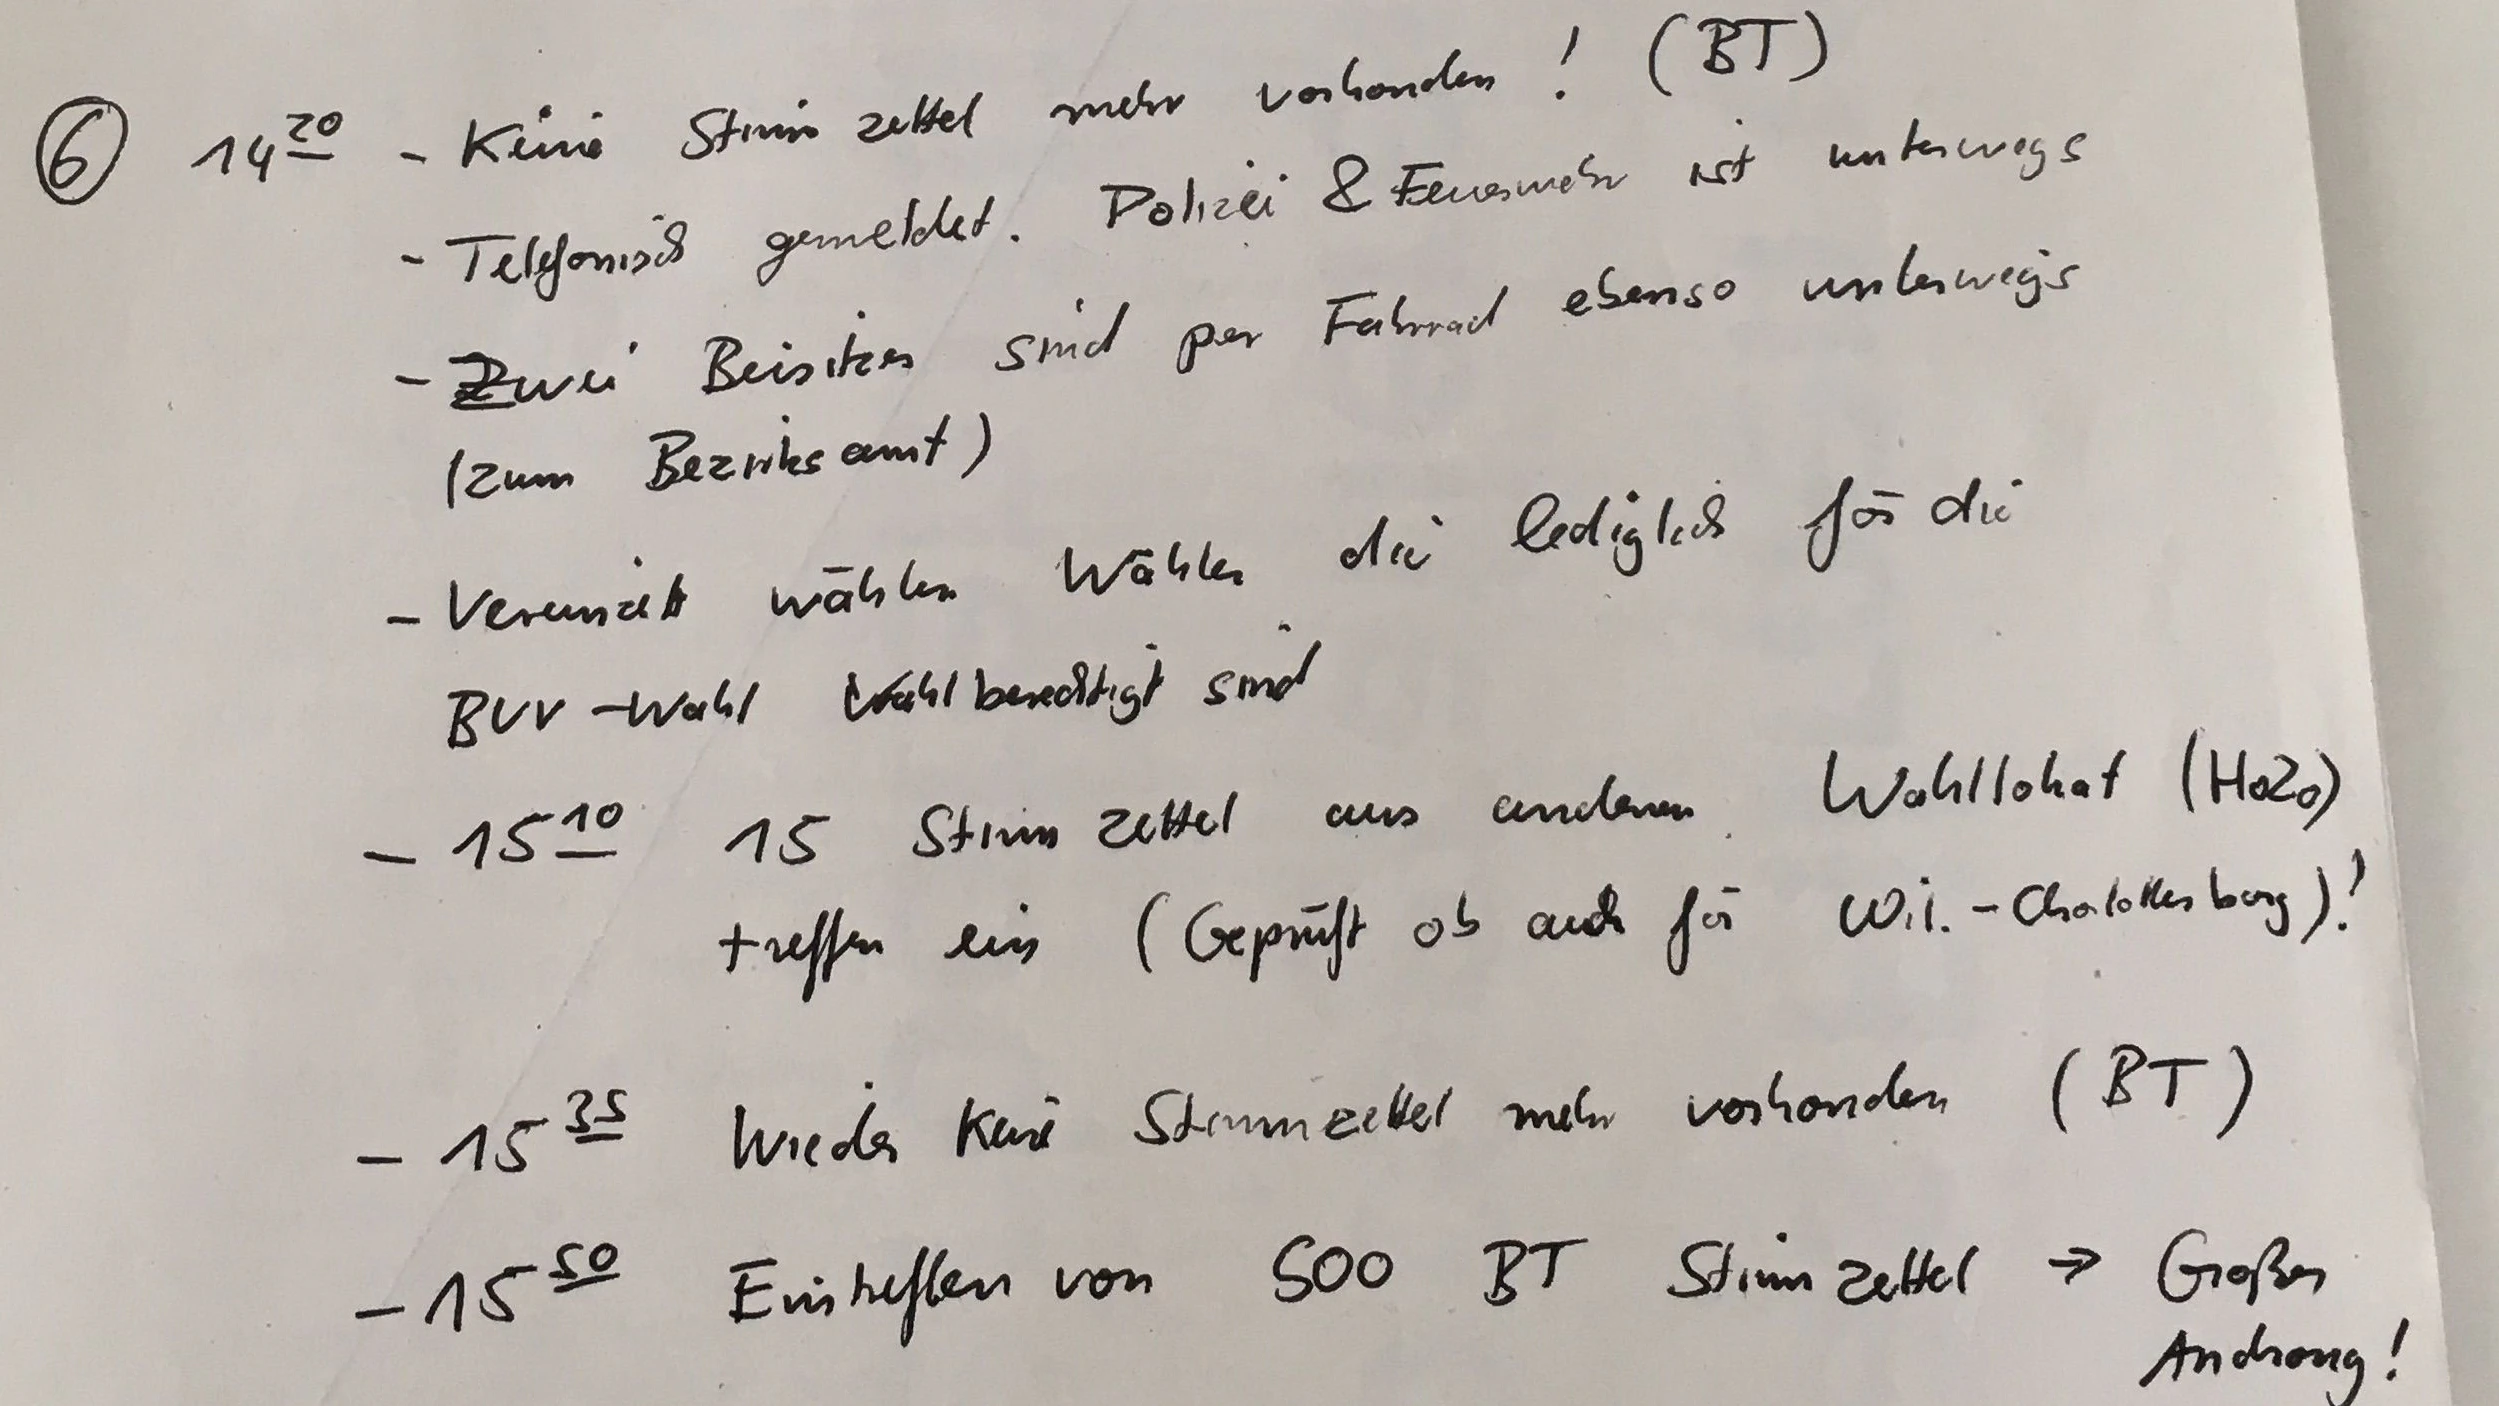 ⑥ 14²⁰ - Keine Stimmzettel mehr vorhanden! (BT)
- Telefonisch gemeldet. Polizei & Feuerwehr ist unterwegs
- Zwei Beisitzer sind per Fahrrad ebenso unterwegs
(zum Bezirksamt)
- Vereinzelt wählen Wähler die lediglich für die
BVV-Wahl Wahlberechtigt sind
- 15¹⁰ 15 Stimmzettel aus anderen Wahllokal (HoZo)
treffen ein (Geprüft ob auch für Wil.-Charlottenburg)!
- 15³⁵ Wieder Keine Stimmzettel mehr vorhanden (BT)
- 15⁵⁰ Eintreffen von 500 BT Stimmzettel → Großer
Andrang!